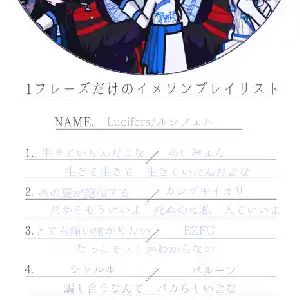 1フレーズだけのイメソンプレイリスト
NAME. Lucifers/ルシフェル
1. 生きていたんだよな / あいみょん
生きて生きて 生きていたんだよな
2. あの夏が飽和する / カンザキイオリ
だからもういいよ 死ぬのは私 人でいいよ
3. とても痛い痛がりたい / EZFG
だってもう しかわからない
4. シャルル / バルーン
騙し合うなんて バカらしいよな